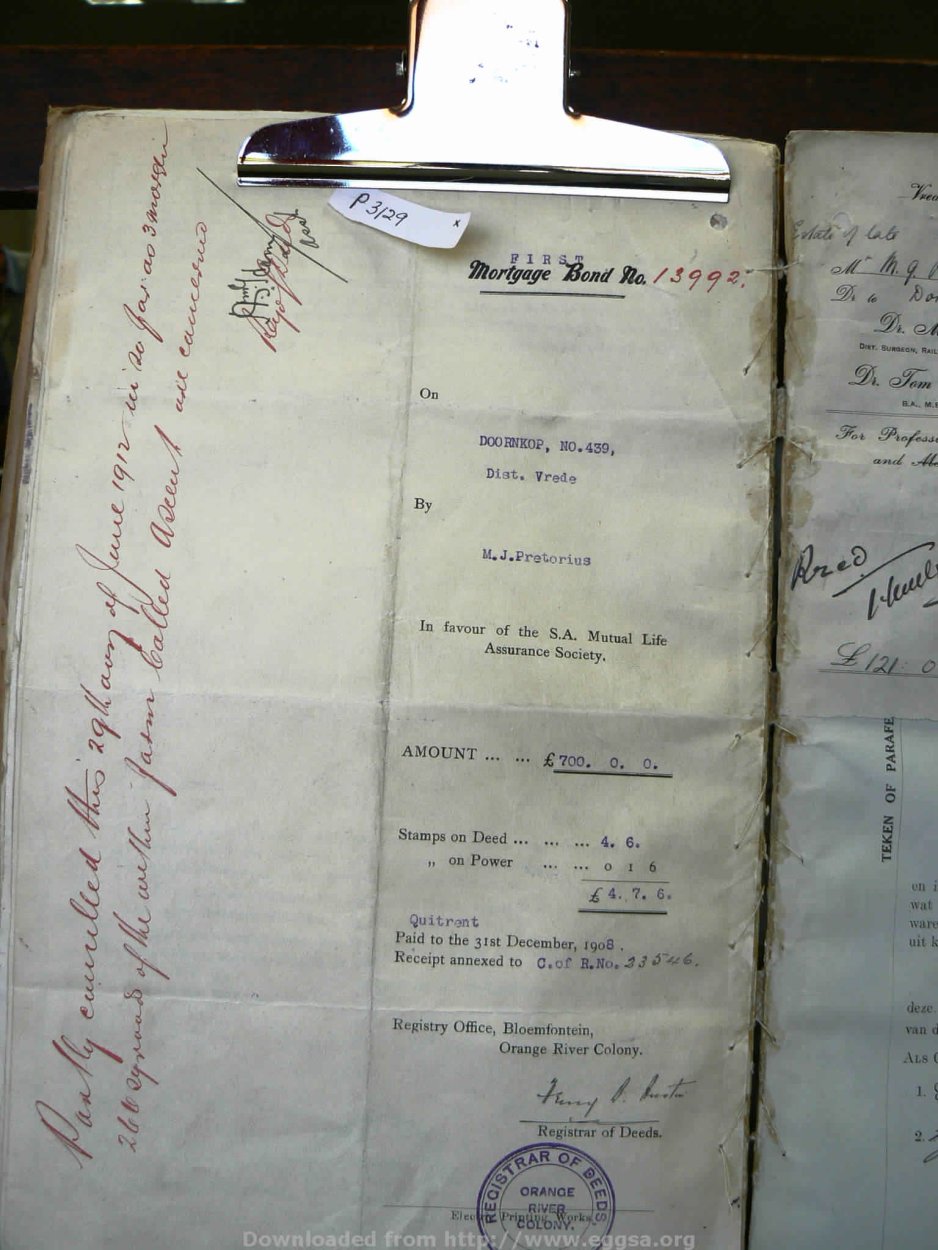 P3/29 x
FIRST
Mortgage Bond No. 13992.
On
DOORNKOP, NO.439,
Dist. Vrede
By
M.J.Pretorius
In favour of the S.A. Mutual Life
Assurance Society.
AMOUNT ... ... £700. 0. 0.
Stamps on Deed ... ... ... 4. 6.
„ on Power ... ... 0 1 6
£ 4. 7. 6.
Quitrent
Paid to the 31st December, 1908.
Receipt annexed to C.of R.No. 23546.
Registry Office, Bloemfontein,
Orange River Colony.
Registrar of Deeds.
REGISTRAR OF DEEDS
ORANGE
RIVER
COLONY.
Printing Works
Partly cancelled this 29th day of June 1912 in so far as 3 morgen
266 sq roods of the within farm called Ascent are concerned
Estate of late
Mr M. J.
Dr to
Dr.
DIST. SURGEON, RAIL
Dr. Tom
B.A., M.B
For Profess
and
£121: 0
TEKEN OF PARAFE
en i
wat
ware
uit k
deze
van d
ALS
1.
2.
Downloaded from http://www.eggsa.org